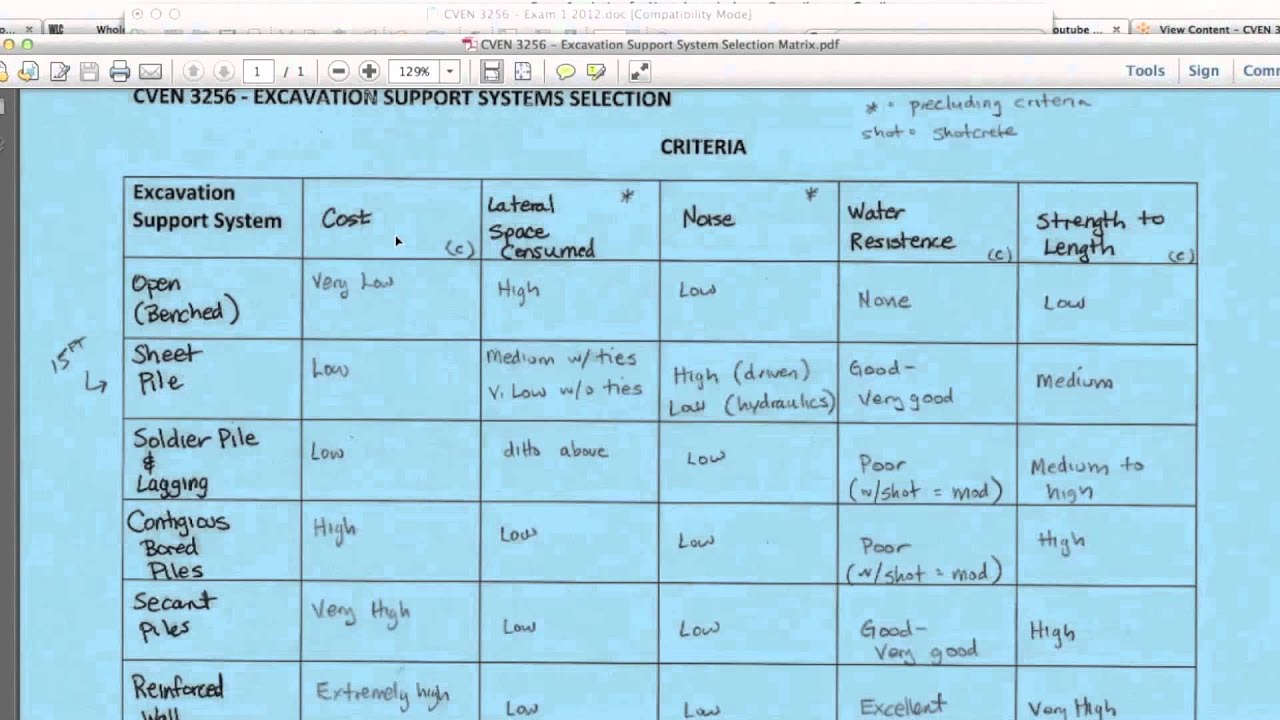 CVEN 3256 - Exam 1 2012.doc [Compatibility Mode]
WLC Whole
outube ...
View Content - CVEN 3
CVEN 3256 - Excavation Support System Selection Matrix.pdf
1 / 1
129%
Tools Sign Comm
CVEN 3256 - EXCAVATION SUPPORT SYSTEMS SELECTION
* = precluding criteria
shot = shotcrete
CRITERIA
Excavation
Support System
Cost
(c)
Lateral *
Space
Consumed
Noise *
Water
Resistence (c)
Strength to
Length (c)
Open
(Benched)
Very Low
High
Low
None
Low
15 FT
Sheet
Pile
Low
Medium w/ ties
V. Low w/o ties
High (driven)
Low (hydraulics)
Good-
Very good
Medium
Soldier Pile
&
Lagging
Low
ditto above
Low
Poor
(w/shot = mod)
Medium to
high
Contigious
Bored
Piles
High
Low
Low
Poor
(w/shot = mod)
High
Secant
Piles
Very High
Low
Low
Good-
Very good
High
Reinforced
Wall
Extremely high
Low
Low
Excellent
Very High